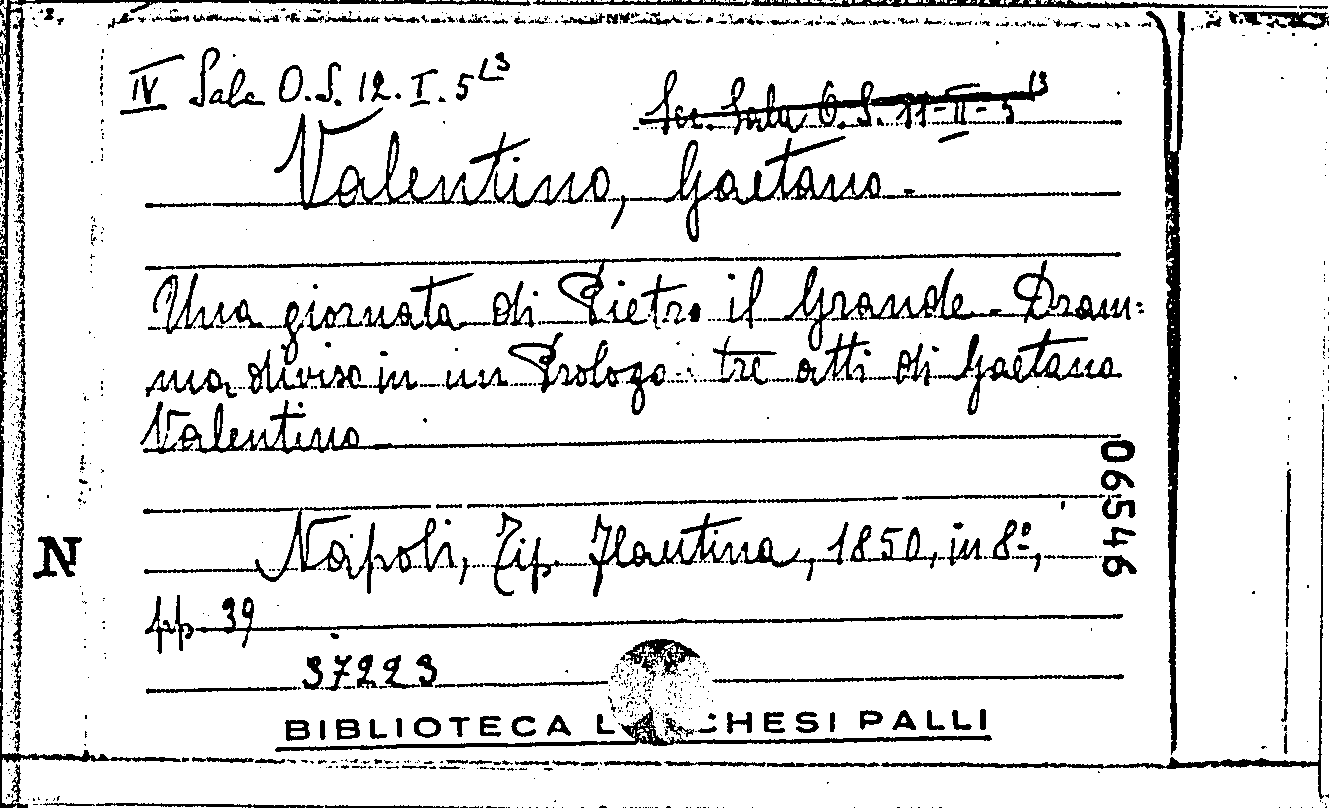 IV Sala O.S. 12. I. 5 L3
Sec. Sala O. S. 11-II-5 13
Valentino, Gaetano.
Una giornata di Pietro il Grande. Dram=
ma diviso in un Prologo tre atti di Gaetano
Valentino
06546
N
Napoli, Tip. Flautina, 1850, in 8º,
pp. 39
37223
BIBLIOTECA L CHESI PALLI